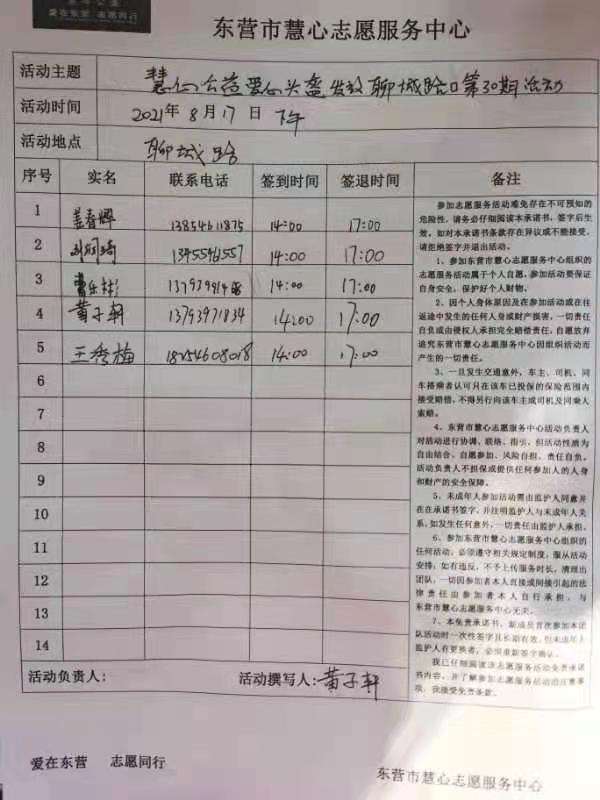 爱在东营 志愿同行
东营市慧心志愿服务中心
活动主题 慧心公益爱心头盔发放聊城路口第30期活动
活动时间 2021年8月17日 下午
活动地点 聊城路
序号 实名 联系电话 签到时间 签退时间 备注
1 姜春辉 13854611875 14:00 17:00
2 13455461557 14:00 17:00
3 14:00 17:00
4 黄子轩 13793971834 14:00 17:00
5 王秀梅 18254608018 14:00 17:00
6
7
8
9
10
11
12
13
14
参加志愿服务活动难免存在不可预知的
危险性，请务必仔细阅读本承诺书，签字后生
效。如对本承诺书条款存在异议或不能接受，
请拒绝签字并退出活动。
1、参加东营市慧心志愿服务中心组织的
志愿服务活动属于个人自愿，参加活动要保证
自身安全，保护好个人财物。
2、因个人身体原因及在参加活动或在往
返途中发生的任何人身或财产损害，一切责任
自负或由侵权人承担完全赔偿责任，自愿放弃
追究东营市慧心志愿服务中心因组织活动而
产生的一切责任。
3、一旦发生交通意外，车主、司机、同
车搭乘者认可只在该车已投保的保险范围内
接受赔偿，不得另行向该车主或司机及同乘人
索赔。
4、东营市慧心志愿服务中心活动负责人
对活动进行协调、联络、指引，但活动性质为
自由结合、自愿参加、风险自担、责任自负。
活动负责人不担保或提供任何参加人的人身
和财产的安全保障。
5、未成年人参加活动需由监护人同意并
在在承诺书签字，并注明监护人与未成年人关
系，如发生任何意外，一切责任由监护人承担。
6、参加东营市慧心志愿服务中心组织的
任何活动，必须遵守相关规定制度，服从活动
安排；如有违反，不予上传服务时长，清理出
团队，一切因参加者本人直接或间接引起的法
律责任由参加者本人自行承担，与
东营市慧心志愿服务中心无关。
7、本免责承诺书，新成员首次参加本团
队活动时一次性签字且长期有效，但未成年人
监护人有更换者，必须重新签字确认。
我已仔细阅读该志愿服务活动免责承诺
书内容，并了解参加志愿服务活动的注意事
项，我接受免责条款。
活动负责人： 活动撰写人：黄子轩
爱在东营 志愿同行
东营市慧心志愿服务中心